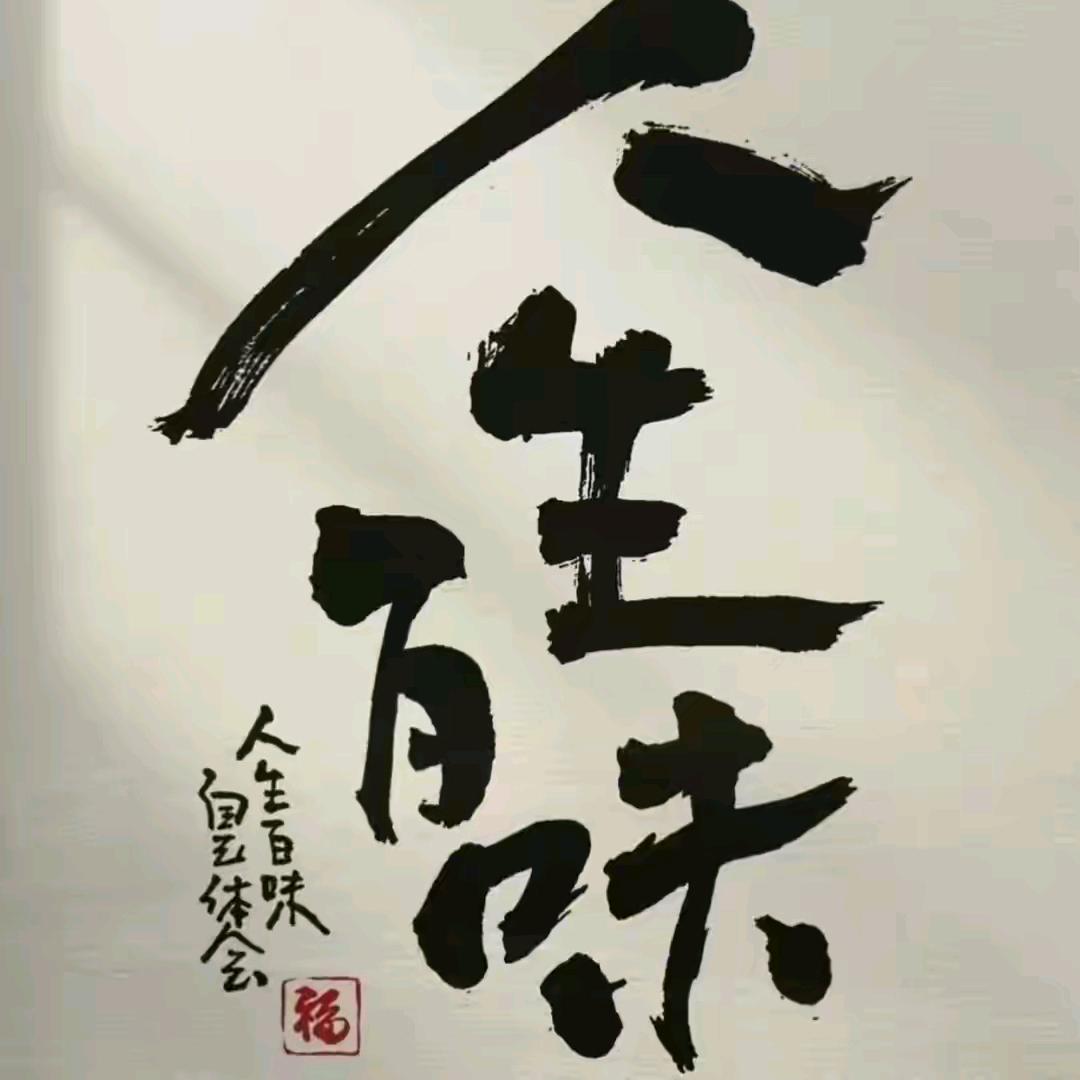 人生百味
人生百味
自己体会
福